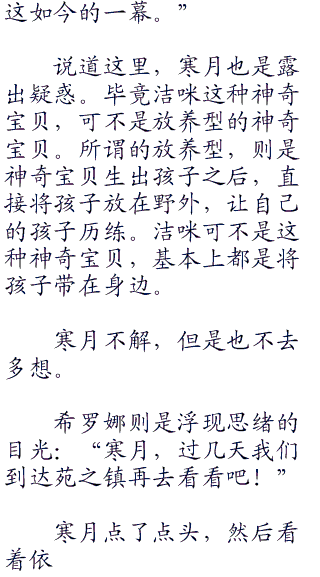 这如今的一幕。”
说道这里，寒月也是露
出疑惑。毕竟洁咪这种神奇
宝贝，可不是放养型的神奇
宝贝。所谓的放养型，则是
神奇宝贝生出孩子之后，直
接将孩子放在野外，让自己
的孩子历练。洁咪可不是这
种神奇宝贝，基本上都是将
孩子带在身边。
寒月不解，但是也不去
多想。
希罗娜则是浮现思绪的
目光：“寒月，过几天我们
到达苑之镇再去看看吧！”
寒月点了点头，然后看
着依